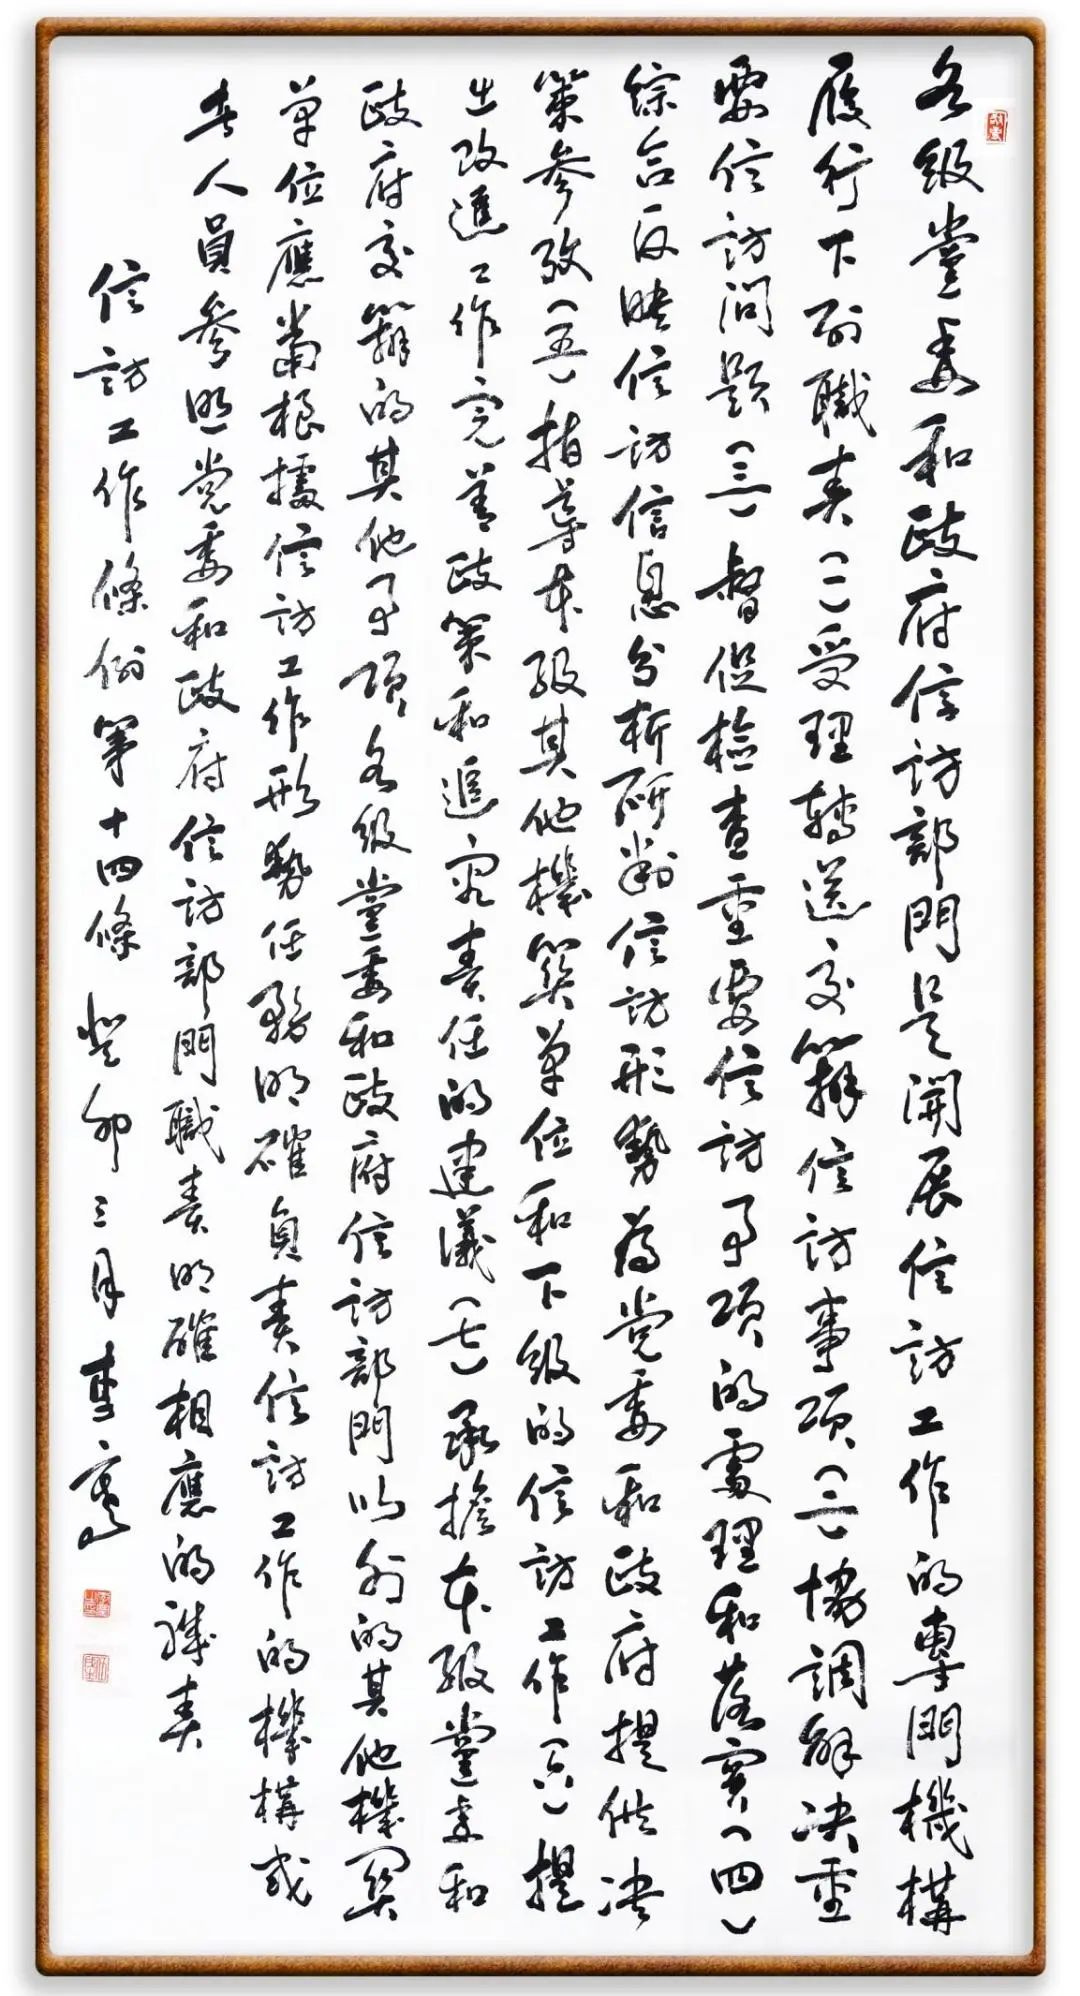 各級黨委和政府信訪部門是開展信訪工作的專門機構
履行下列職責(一)受理轉送交辦信訪事項(二)協調解决重
要信訪問題(三)督促檢查重要信訪事項的處理和落實(四)
綜合反映信訪信息分析研判信訪形勢為党委和政府提供决
策參攷(五)指導本級其他機關單位和下級的信訪工作(六)提
出改進工作完善政策和追究責任的建議(七)承擔本級黨委和
政府交辦的其他事項各級黨委和政府信訪部門以外的其他機関
單位應當根據信訪工作形勢任務明確負責信訪工作的機構或
者人員參照党委和政府信訪部門職責明確相應的職責
信訪工作條例第十四條 癸卯三月李